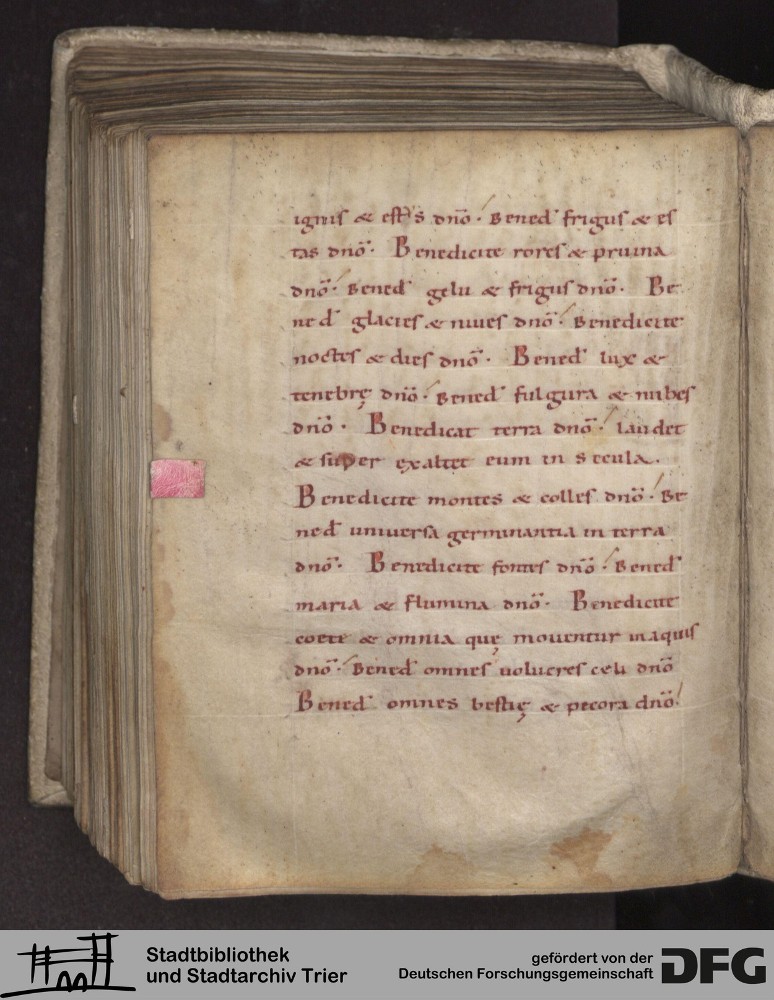 ignis & est9s dnō. Bened̄ frigus & es
tas dnō. Benedicite rores & pruina
dnō. Bened̄ gelu & frigus dnō. Be
ned̄ glacies & niues dnō. Benedicite
noctes & dies dnō. Bened̄ lux &
tenebrę dnō. Bened̄ fulgura & nubes
dnō. Benedicat terra dnō. laudet
& super exaltet eum in secula.
Benedicite montes & colles dnō. Be
ned̄ uniuersa germinantia in terra
dnō. Benedicite fontes dnō. Bened̄
maria & flumina dnō. Benedicite
coete & omnia quę mouentur in aquis
dnō. Bened̄ omnes uolucres celi dnō
Bened̄ omnes bestię & pecora dnō.
Stadtbibliothek
und Stadtarchiv Trier
gefördert von der
Deutschen Forschungsgemeinschaft
DFG